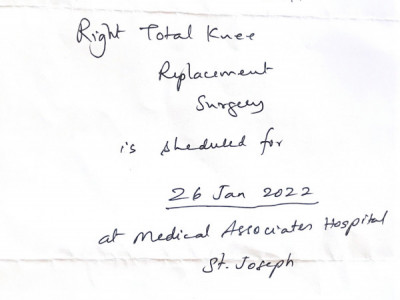 Right Total Knee
Replacement
Surgery
is sheduled for
26 Jan 2022
at Medical Associates Hospital
St. Joseph